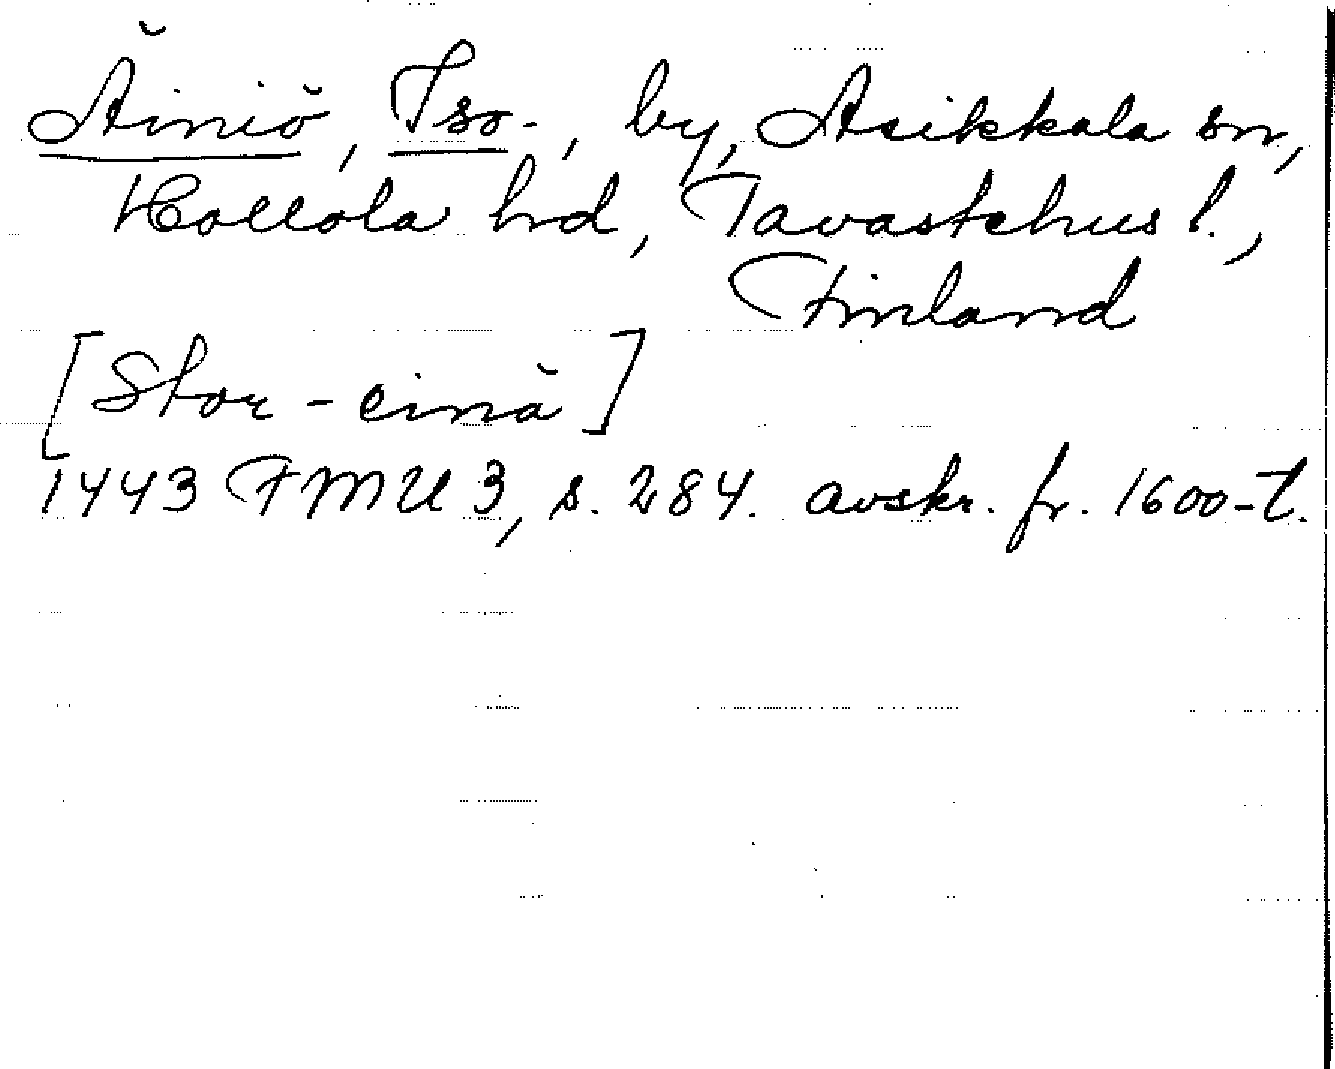 Äiniö, Iso-, by, Asikkala sn,
Hollola hd, Tavastehus l.,
Finland
[Stor-einä]
1443 FMU 3, s. 284. avskr. fr. 1600-t.